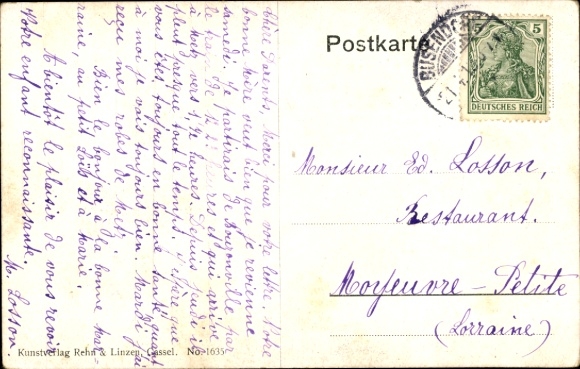 Postkarte
BUSENDORF
5 5
DEUTSCHES REICH
Monsieur Ed. Losson,
Restaurant.
Moyeuvre-Petite
(Lorraine)
Chers Parents, Merci pour votre lettre. Notre
bonne Mère veut bien que je revienne
samedi. Je partirais de Bouzonville par
le train de 12 heures et qui arrive
à Metz vers 1 1/2 heures. Depuis jeudi il
pleut presque tout le temps. J'espère que
vous êtes toujours en bonne santé, quant
à moi je vais toujours bien. Mardi j'ai
reçu mes robes de Metz.
Bien le bonjour à la bonne Mar-
raine, au petit Loüs et à Marie.
A bientôt le plaisir de vous revoir
Votre enfant reconnaissante.
M. Losson
Kunstverlag Rehn & Linzen, Cassel. No. 1635